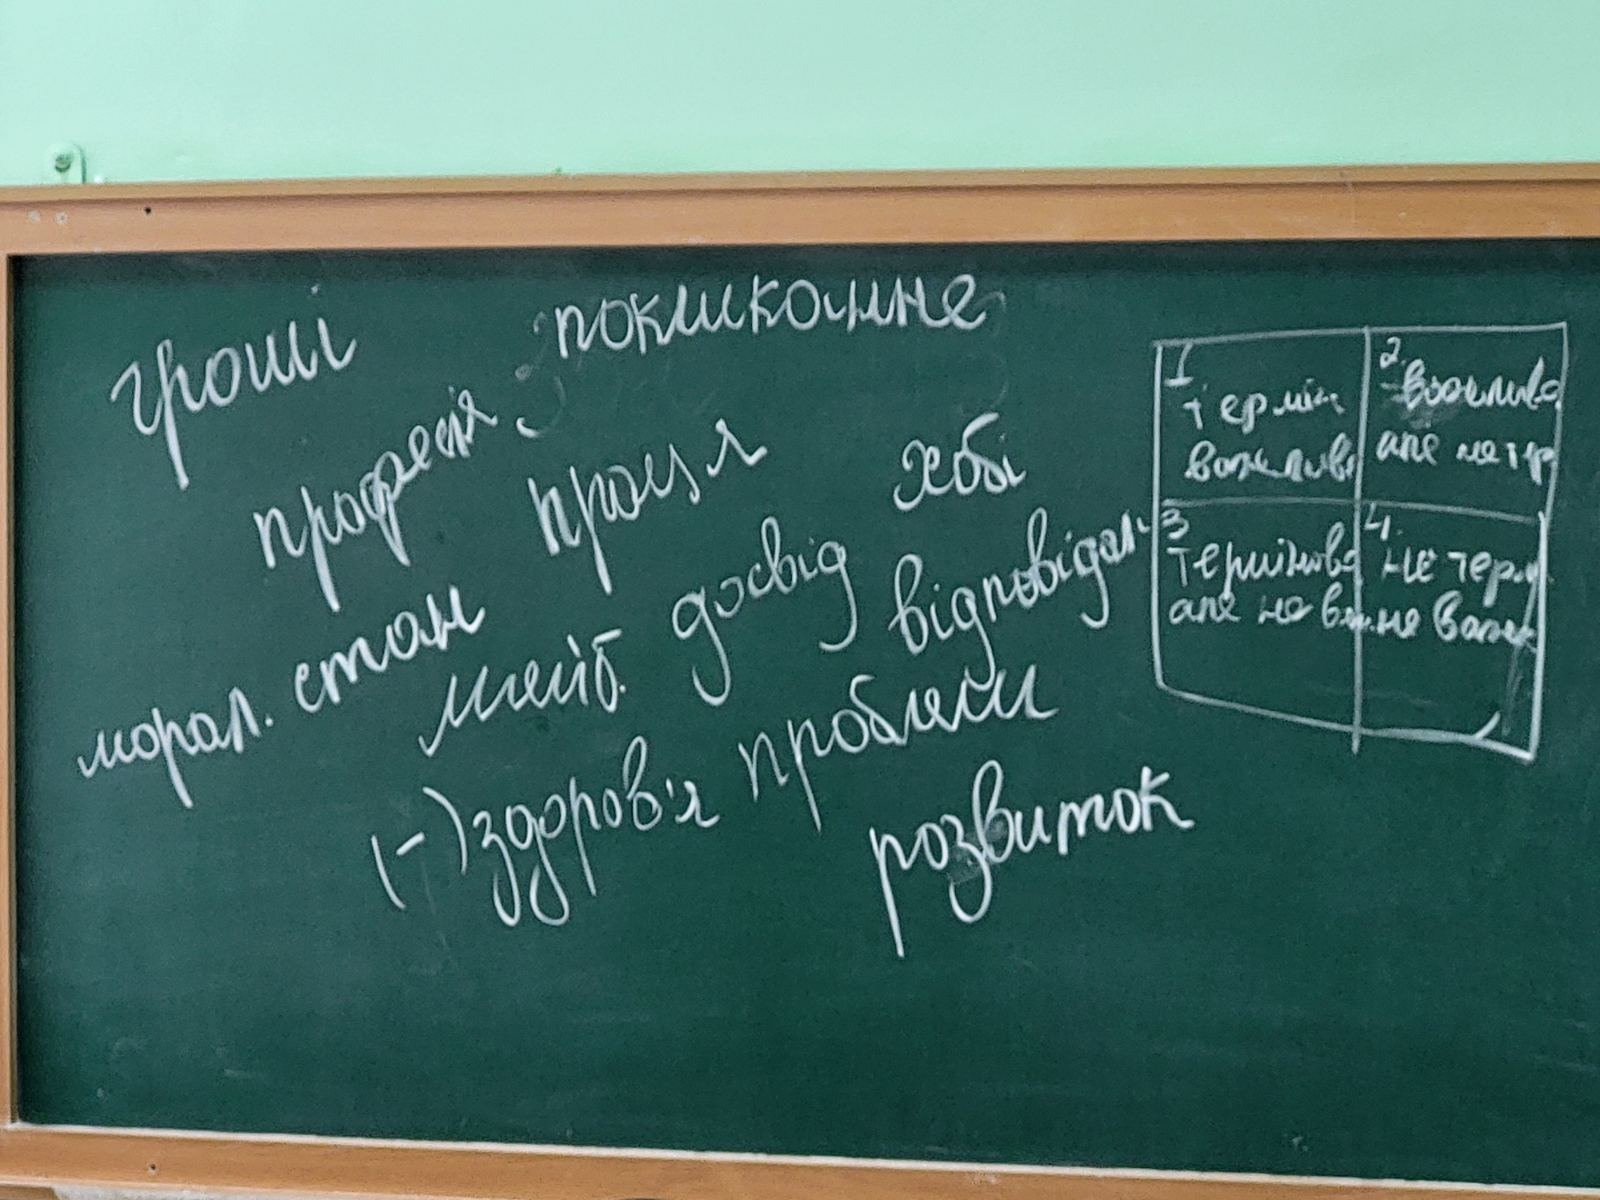 гроші
покликання
професія
праця
хобі
морал. стан
майб.
досвід
відповідал
(-) здоров'я
проблеми
розвиток
1
термін
важлив
2.
важливо
але не тер
3
терміново
але не в
4.
не терм
не важл